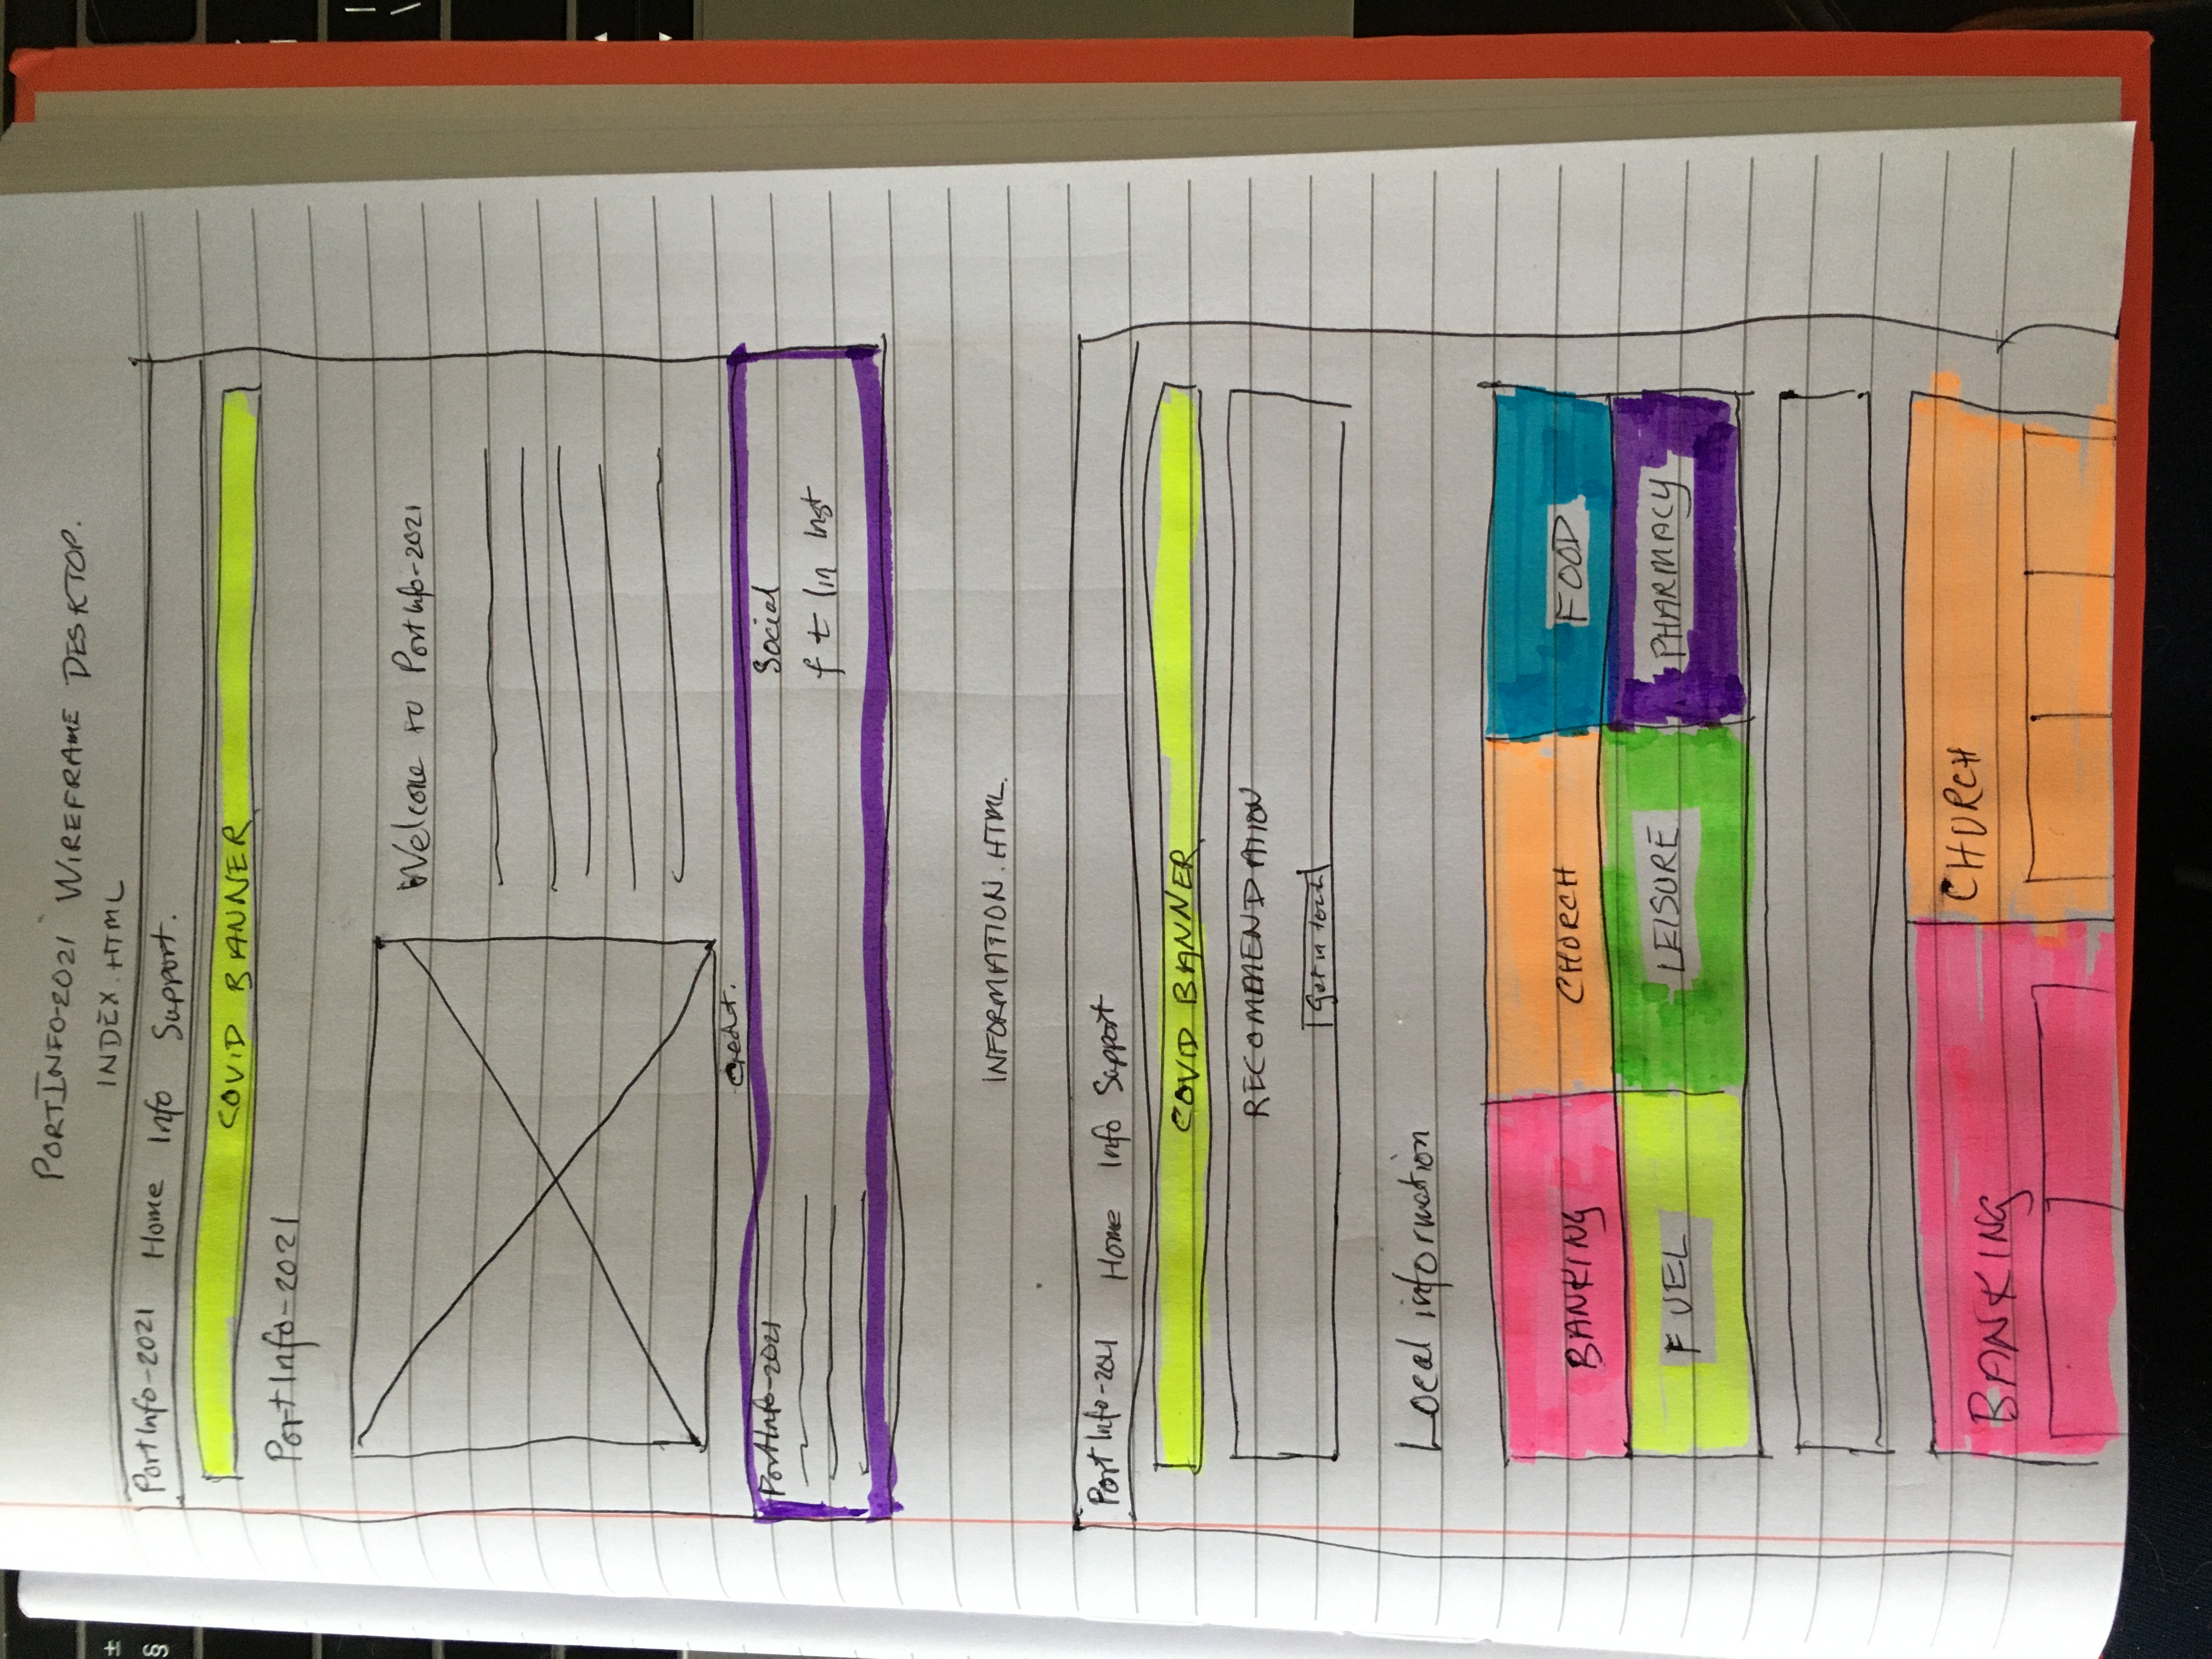 PORTINFO-2021 WIREFRAME DESKTOP.
INDEX.HTML
PortInfo-2021 Home Info Support.
COVID BANNER
PortInfo-2021
Welcome to PortInfo-2021
Credit.
PortInfo-2021 Social
f t In Inst
INFORMATION.HTML.
PortInfo-2021 Home Info Support
COVID BANNER
RECOMMENDATION
Get in touch
Local information
BANKING CHURCH FOOD
FUEL LEISURE PHARMACY
BANKING CHURCH
±
§